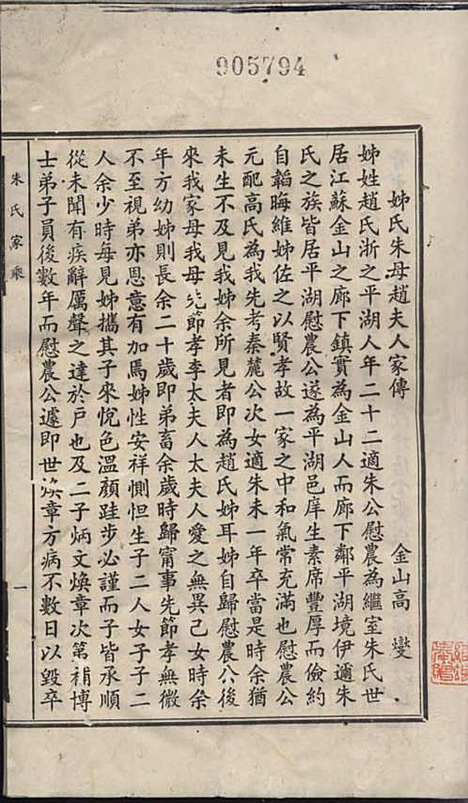 905794
姊氏朱母趙夫人家傳
金山高燮
姊姓趙氏浙之平湖人年二十二適朱公慰農為繼室朱氏世
居江蘇金山之廊下鎮實為金山人而廊下鄰平湖境伊邇朱
氏之族皆居平湖慰農公遂為平湖邑庠生素席豐厚而儉約
自韜晦維姊佐之以賢孝故一家之中和氣常充滿也慰農公
元配高氏為我先考秦麓公次女適朱未一年卒當是時余猶
未生不及見我姊余所見者即為趙氏姊耳姊自歸慰農公後
來我家母我母先節孝李太夫人太夫人愛之無異己女時余
年方幼姊則長余二十歲即弟畜余歲時歸甯事先節孝無微
不至視弟亦恩意有加焉姊性安祥惻怛生子二人女子子二
人余少時每見姊攜其子來悅色溫顏跬步必謹而子皆承順
從未聞有疾辭厲聲之達於戶也及二子炳文煥章次第補博
士弟子員後數年而慰農公遽即世煥章方病不數日以毀卒
朱氏家乘
一